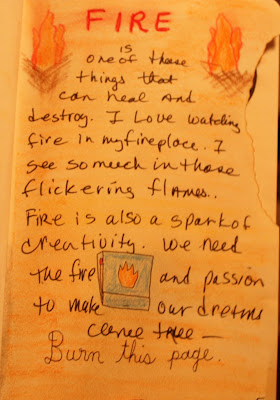 FIRE
is
one of those
things that
can heal and
destroy. I Love watching
fire in my fireplace. I
see so much in those
flickering flames..
Fire is also a spark of
creativity. We need
the fire and passion
to make our dreams
come true —
Burn this page.